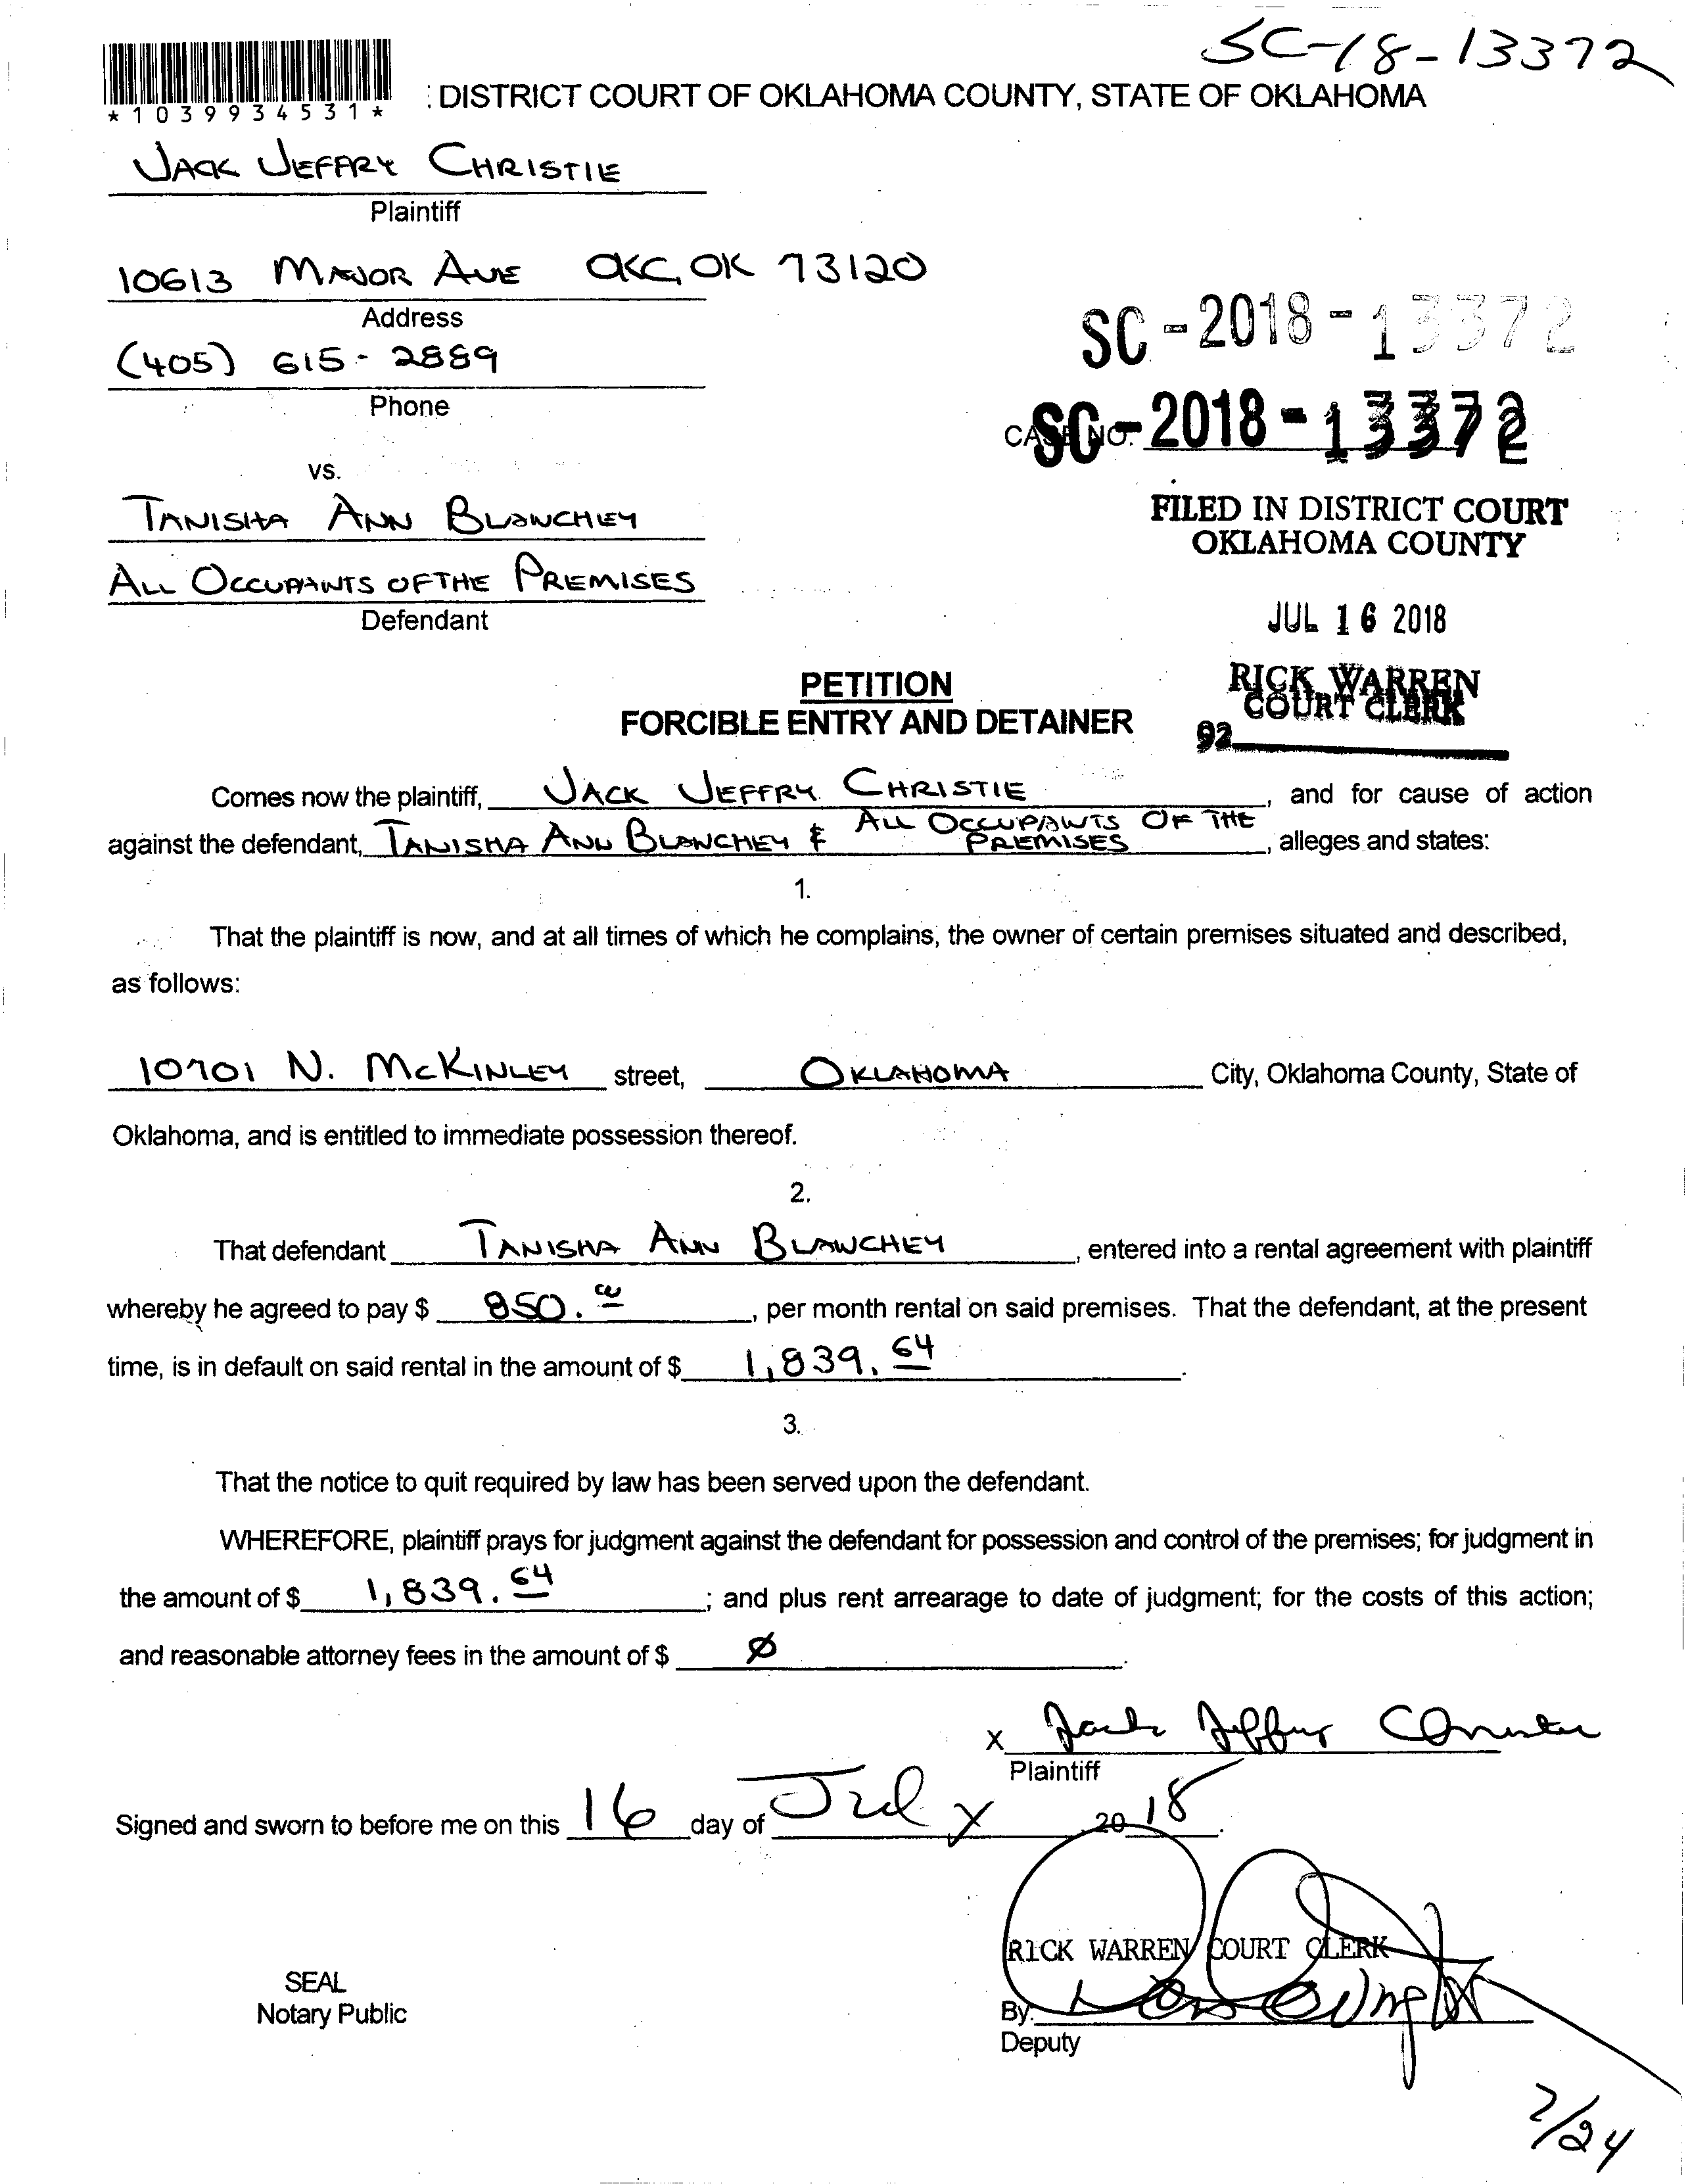 SC-18-13372
*1039934531*
: DISTRICT COURT OF OKLAHOMA COUNTY, STATE OF OKLAHOMA
JACK JEFFRY CHRISTIE
Plaintiff
10613 MAJOR AVE OKC, OK 73120
Address
(405) 615-2889
Phone
SC-2018-13372
CASE NO. SC-2018-13372
vs.
TANISHA ANN BLANCHEY
ALL OCCUPANTS OF THE PREMISES
Defendant
FILED IN DISTRICT COURT
OKLAHOMA COUNTY
JUL 16 2018
RICK WARREN
COURT CLERK
92
PETITION
FORCIBLE ENTRY AND DETAINER
Comes now the plaintiff, JACK JEFFRY CHRISTIE, and for cause of action
against the defendant, TANISHA ANN BLANCHEY & ALL OCCUPANTS OF THE PREMISES, alleges and states:
1.
That the plaintiff is now, and at all times of which he complains, the owner of certain premises situated and described,
as follows:
10701 N. McKINLEY street, OKLAHOMA City, Oklahoma County, State of
Oklahoma, and is entitled to immediate possession thereof.
2.
That defendant TANISHA ANN BLANCHEY, entered into a rental agreement with plaintiff
whereby he agreed to pay $ 850.00, per month rental on said premises. That the defendant, at the present
time, is in default on said rental in the amount of $ 1,839.64.
3.
That the notice to quit required by law has been served upon the defendant.
WHEREFORE, plaintiff prays for judgment against the defendant for possession and control of the premises; for judgment in
the amount of $ 1,839.64; and plus rent arrearage to date of judgment; for the costs of this action;
and reasonable attorney fees in the amount of $ Ø.
X Jack Jeffry Christie
Plaintiff
Signed and sworn to before me on this 16 day of July 2018.
RICK WARREN COURT CLERK
SEAL
Notary Public
By:
Deputy
7/24